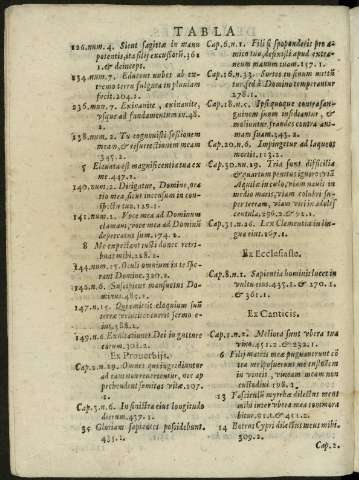 TABLA
126.num.4. Sicut sagittæ in manu
potentis, ita filij excussorũ.361
1.& deinceps.
134.num.7. Educens nubes ab ex-
tremo terræ fulgura in pluviam
fecit.204.2.
136.num.7. Exinanite, exinanite,
usque ad fundamentum in
138.num.2. Tu cognovisti sessionem
meam,& resurrectionem meam
345.2.
5 Elevata est magnificentia tua
447.2.
140.num.2. Dirigatur, Domine, ora
tio mea sicut incensum in con-
spectu tuo,129.1.
141.num.2. Voce mea ad Dominum
clamavi, voce mea ad Dominũ
deprecatus sum.174.2.
8 Me expectant iusti donec retri-
buas mihi.128.2.
144.num.15. Oculi omnium in te spe-
rant Domine.320.2.
146.n.6. Suscipiens mansuetos Do-
minus.485.1.
147.n.15. Qui emittit eloquium suũ
terræ velociter currit sermo e-
ius.388.2.
149.n.6. Exaltationes Dei in gutture
eorum.302.2.
Ex Proverbijs.
Cap.2.n.19. Omnes qui ingrediuntur
ad eam non revertentur, nec ap
prehendent semitas vitæ.207.
2.
Cap.3.n.6. In sinistra eius longitudo
dierum.437.1.
35 Gloriam sapientes possidebunt.
481.1.
Cap.6.n.1. Fili si spoponderis pro a-
mico tuo, defixisti apud extra-
neum manum tuam.157.1.
Cap.16.n.33. Sortes in sinum mittũ
tur, sed à Domino temperantur
278.1.
Cap.18.n.s. Ipsi quoque contra san-
guinem suum insidiantur, &
moliuntur fraudes contra ani-
mam suam.343.2.
Cap.20.n.6. Impingetur ad laqueos
mortis.113.2.
Cap.30.nn.19. Tria sunt difficilia
& quartum penitus ignoro: viã
Aquilæ in cælo, viam navis in
medio maris, viam colubri su-
per terram, viam viri in adoles
centula.296.2.& 91.2.
Cap.31.n.26. Lex Clementiæ in lin-
gua eius.267.1.
Ex Ecclesiaste.
Cap.8.n.1. Sapientia hominis lucet in
vultu eius.435.1. & 270.1.
& 361.1.
Ex Canticis.
Cap.1.n.2. Meliora sunt ubera tua
vino.451.2.& 232.1.
6 Filij matris meæ pugnaverunt cõ
tra me: posuerunt me custodem
in vineis, vineam meam non
custodivi.198.2.
13 Fasciculus myrrhæ dilectus meus
mihi inter ubera mea commora
bitur.81.1.& 451.2.
14 Botrus Cypri dilectus meus mihi.
309.2.
Cap.2.